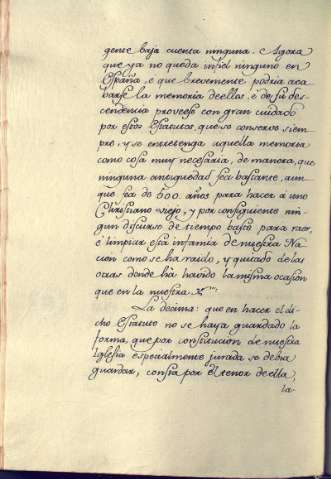 gente baja cuenta ninguna. Agora
que ya no queda infiel ninguno en
España, e que brevemente podria aca
barse la memoria de ellos. é de su des
cendencia proveese con gran cuidado
por estos estatutos, que se conserve siem
pre, y se entretenga aquella memoria
como cosa muy necesaria, de manera, que
ninguna antiguedad sea bastante, aun
que sea de 500. años para hacer á uno
Christiano viejo, y por consiguiente nin
gun discurso de tiempo baste para raer,
é limpiar esta infamia de nuestra Na
cion como se ha raido, y quitado de las
otras donde ha havido la misma ocasion
que en la nuestra
La decima: que en hacer el di
cho Estatuto no se haya guardado la
forma, que por constitucion de nuestra
Iglesia especialmente jurada se debia
guardar, consta por el tenor de ella,
la